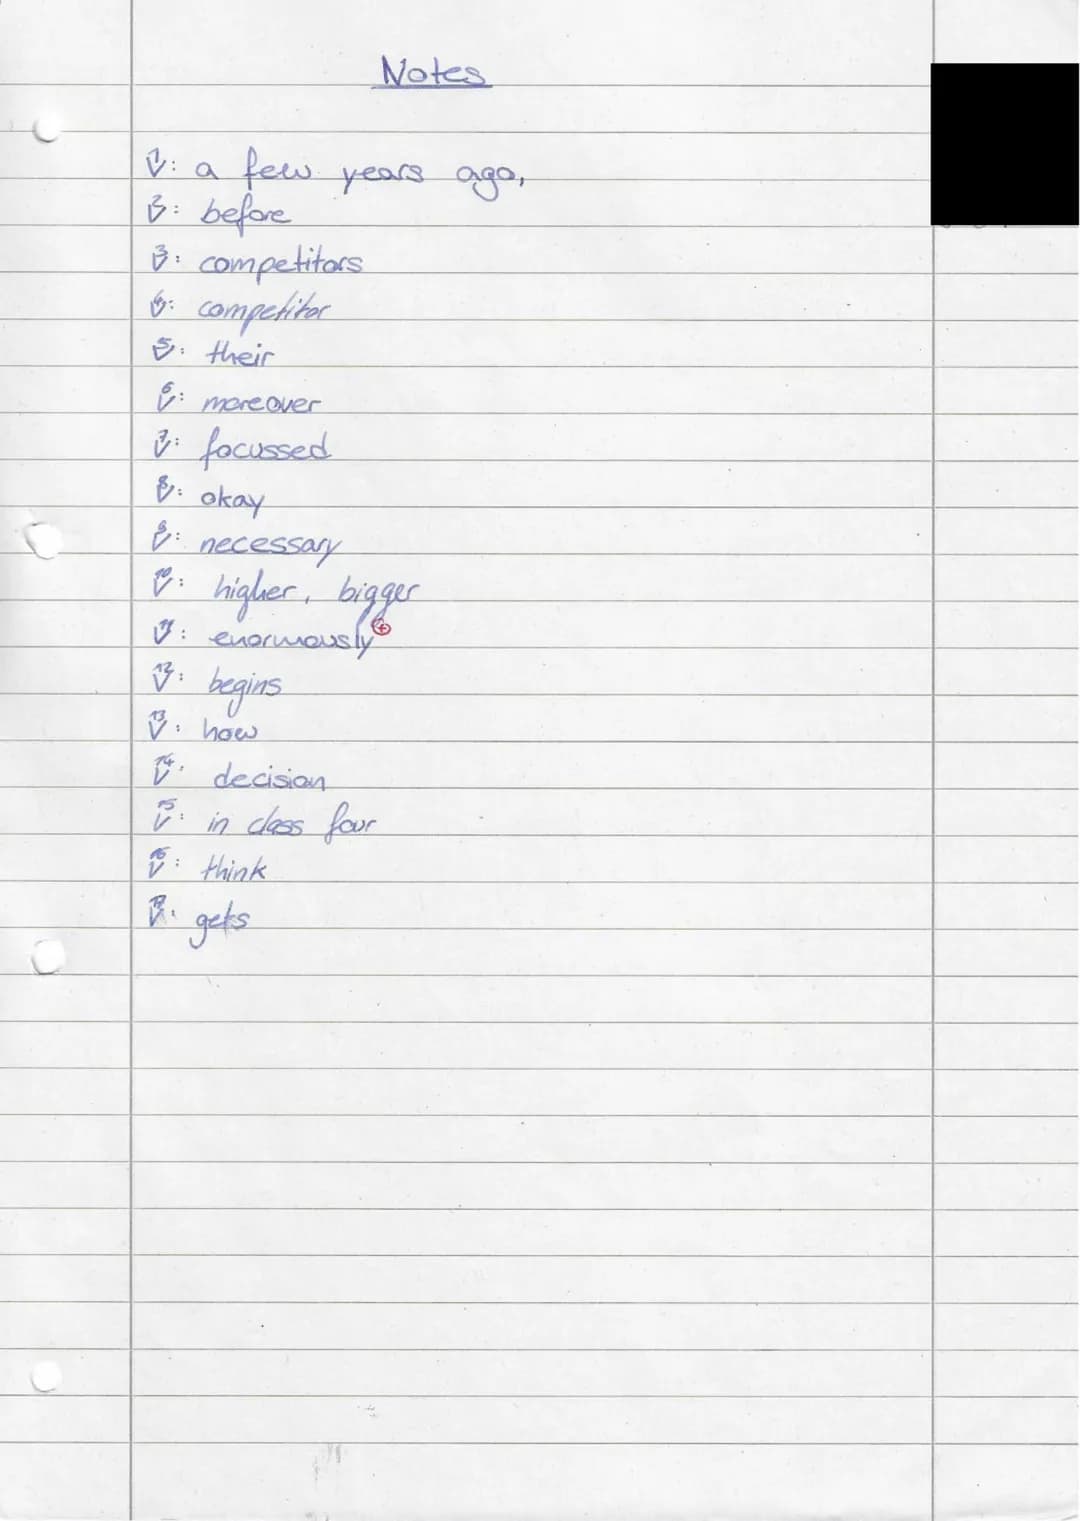 Notes
1: a few years ago,
2: before
3: competitors
4: competitor
5: their
6: moreover
7: focussed
8: okay
9: necessary
10: higher, bigger
11: enormously
12: begins
13: how
14: decision
15: in class four
16: think
17: gets